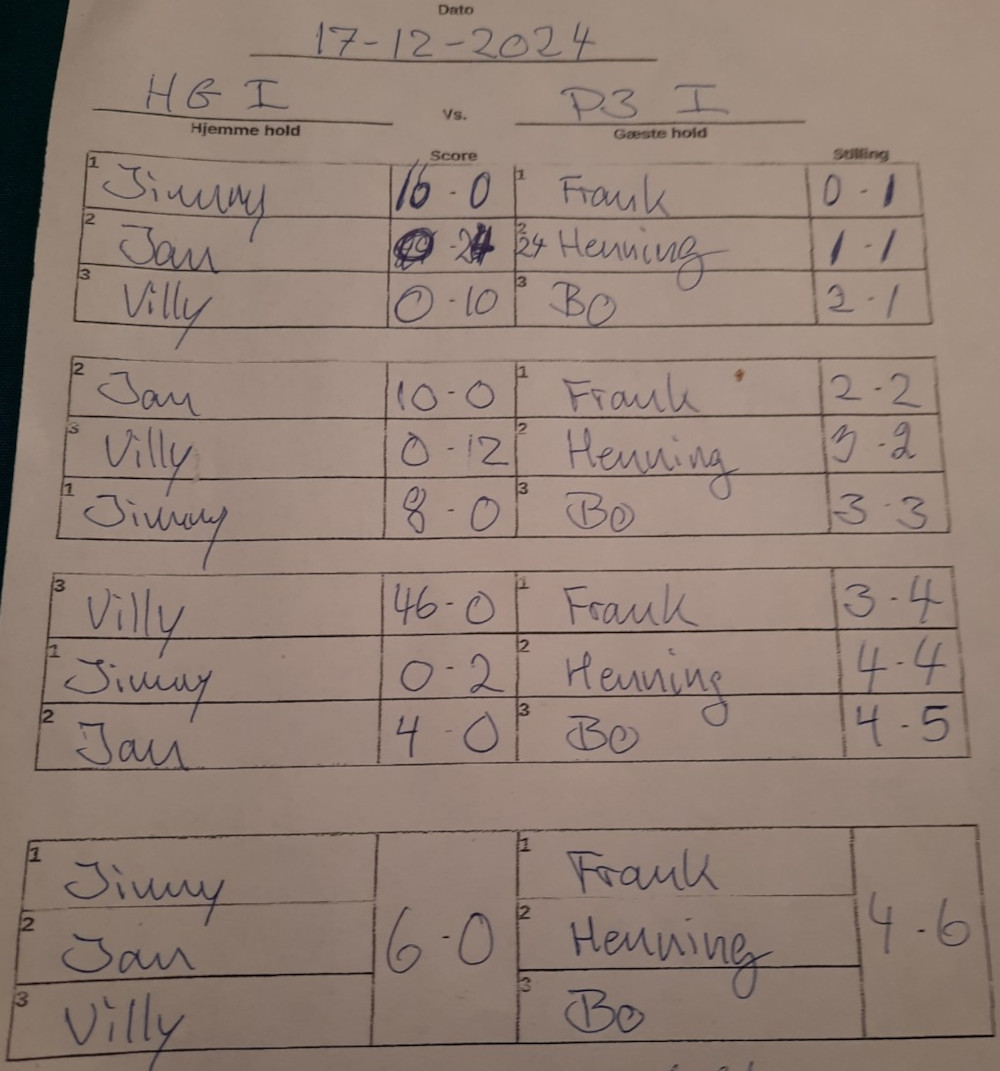 Dato
17-12-2024
HG I Vs. P3 I
Hjemme hold Gæste hold
Score Stilling
1 Jimmy 16-0 1 Frank 0-1
2 Jan 2 24 Henning 1-1
3 Villy 0-10 3 Bo 2-1
2 Jan 10-0 1 Frank 2-2
3 Villy 0-12 2 Henning 3-2
1 Jimmy 8-0 3 Bo 3-3
3 Villy 46-0 1 Frank 3-4
1 Jimmy 0-2 2 Henning 4-4
2 Jan 4-0 3 Bo 4-5
1 Jimmy 1 Frank
2 Jan 6-0 2 Henning 4-6
3 Villy 3 Bo